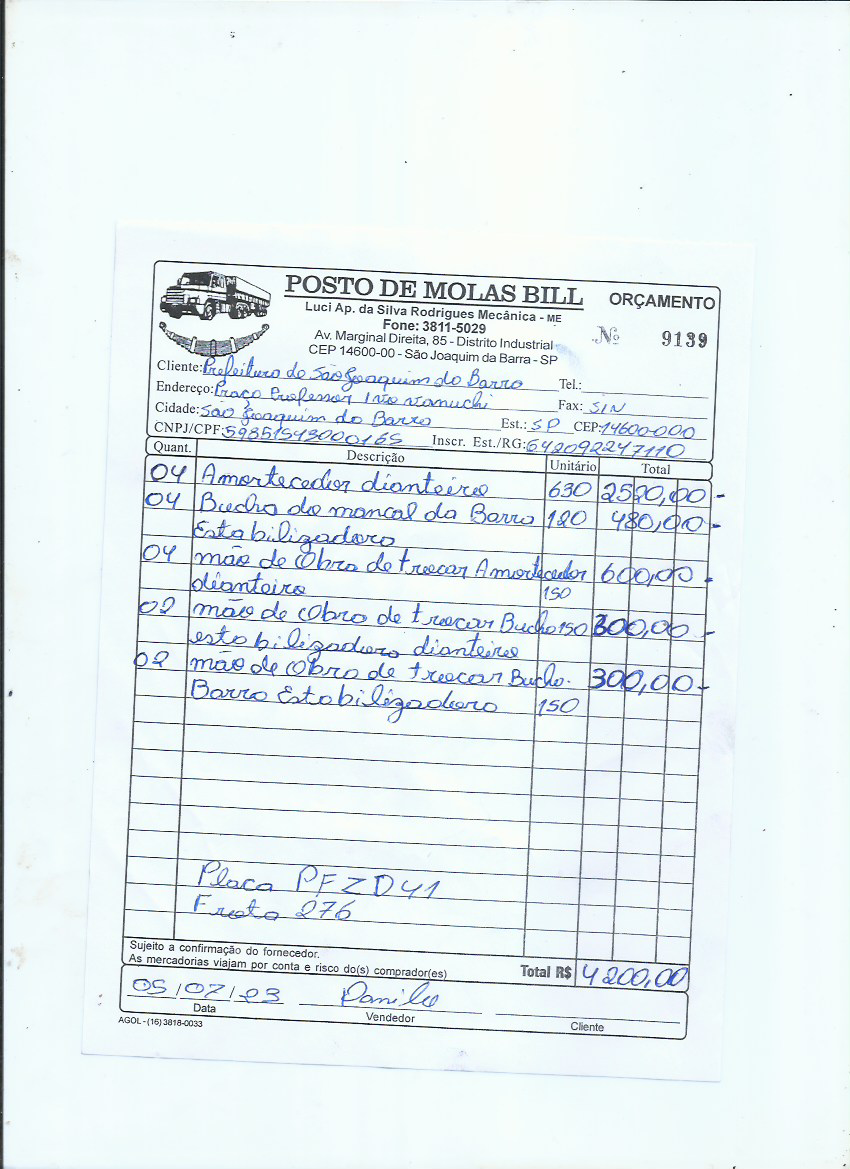 POSTO DE MOLAS BILL
ORÇAMENTO
Luci Ap. da Silva Rodrigues Mecânica - ME
Fone: 3811-5029
Av. Marginal Direita, 85 - Distrito Industrial
CEP 14600-00 - São Joaquim da Barra - SP
Nº 9139
Cliente: Prefeitura de São Joaquim da Barra Tel.:
Endereço: Praça Professor Fax: S/N
Cidade: São Joaquim da Barra Est.: SP CEP: 14600-000
CNPJ/CPF: 59851543000165 Inscr. Est./RG: 642092247110
Quant. Descrição Unitário Total
04 Amortecedor dianteiro 630 2520,00-
04 Bucha do mancal da Barra 120 480,00-
Estabilizadora
04 mão de Obra de trocar Amortecedor 600,00-
dianteiro 150
02 mão de Obra de trocar Bucha 150 300,00-
estabilizadora dianteira
02 mão de Obra de trocar Bucha. 300,00-
Barra Estabilizadora 150
Placa
Frota 276
Sujeito a confirmação do fornecedor.
As mercadorias viajam por conta e risco do(s) comprador(es)
Total R$ 4200,00
05/07/23 Danilo
Data Vendedor Cliente
AGOL - (16) 3818-0033